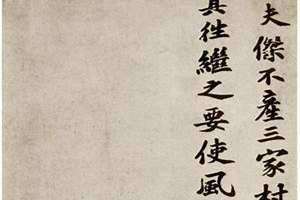 夫傑不產三家村
其徃繼之要使風